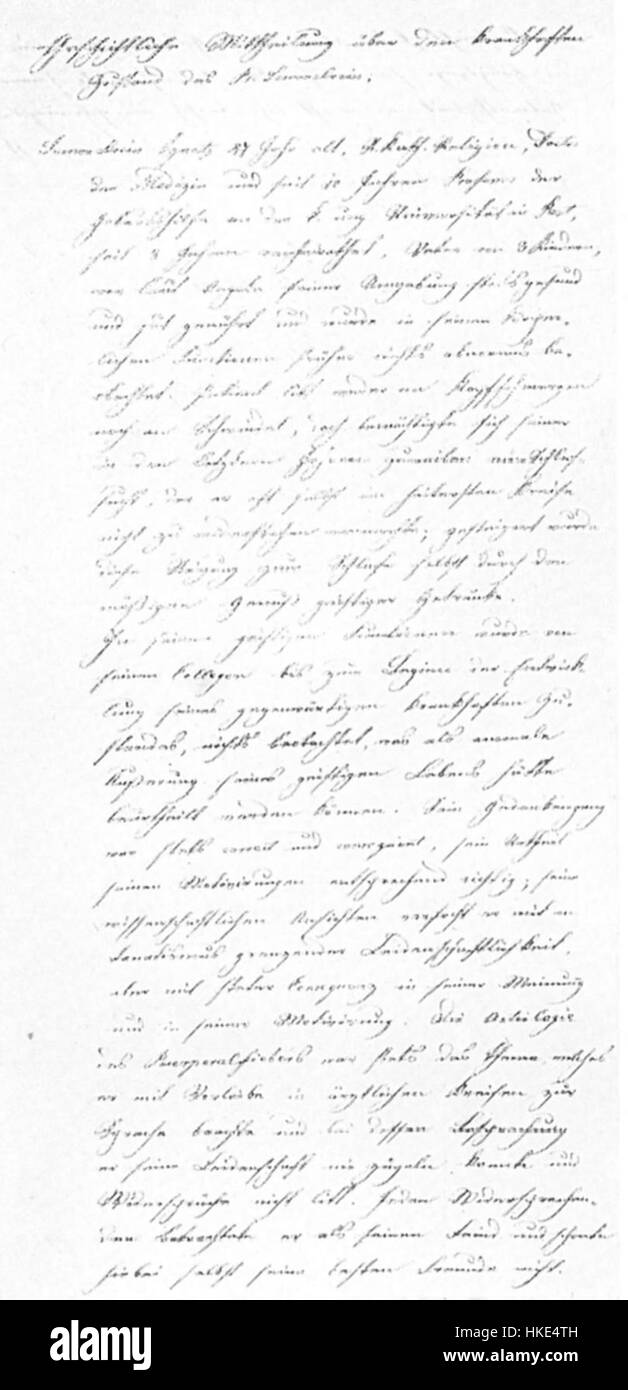 Geschichtliche Mittheilung über den krankhaften
Zustand des Dr. Semmelweis.
Semmelweis Ignatz 47 Jahr alt, R. Kath. Religion, Doctor
der Medizin und seit 10 Jahren Professor der
Geburtshilfe an der k. ung Universität in Pest,
seit 8 Jahren verheirathet, Vater von 3 Kindern,
war laut Angabe seiner Umgebung stets gesund
und gut genährt und wurde in seinen körper-
lichen Functionen früher nichts abnormes be-
obachtet. Patient litt weder an Kopfschmerzen
noch an Schwindel, doch bemächtigte sich seiner
in den letzteren Jahren zuweilen eine Schlaf-
sucht, der er oft selbst im heitersten Kreise
nicht zu widerstehen vermochte; gesteigert wurde
diese Neigung zum Schlafe selbst durch den
mäßigen Genuß geistiger Getränke.
In seinen geistigen Functionen wurde von
seinen Collegen bis zum Beginne der Entwick-
lung seines gegenwärtigen krankhaften Zu-
standes, nichts beobachtet, was als anomale
Äußerung seines geistigen Lebens hätte
beurtheilt werden können. Sein Gedankengang
war stets correct und, sein Urtheil
seinen Motivirungen entsprechend richtig; seine
wissenschaftlichen Ansichten verfocht er mit an
Fanatismus grenzender Leidenschaftlichkeit,
aber mit steter Consequenz in seiner Meinung
und in seiner Motivirung. Die Aetiologie
des Puerperalfiebers war stets das Thema, welches
er mit Vorliebe in ärztlichen Kreisen zur
Sprache brachte und bei dessen Besprechung
er seine Leidenschaft nie zügeln konnte und
Widersprüche nicht litt. Jeden Widersprechen-
den betrachtete er als seinen Feind und schonte
hiebei selbst seine besten Freunde nicht.
alamy stock photo
HKE4TH
www.alamy.com